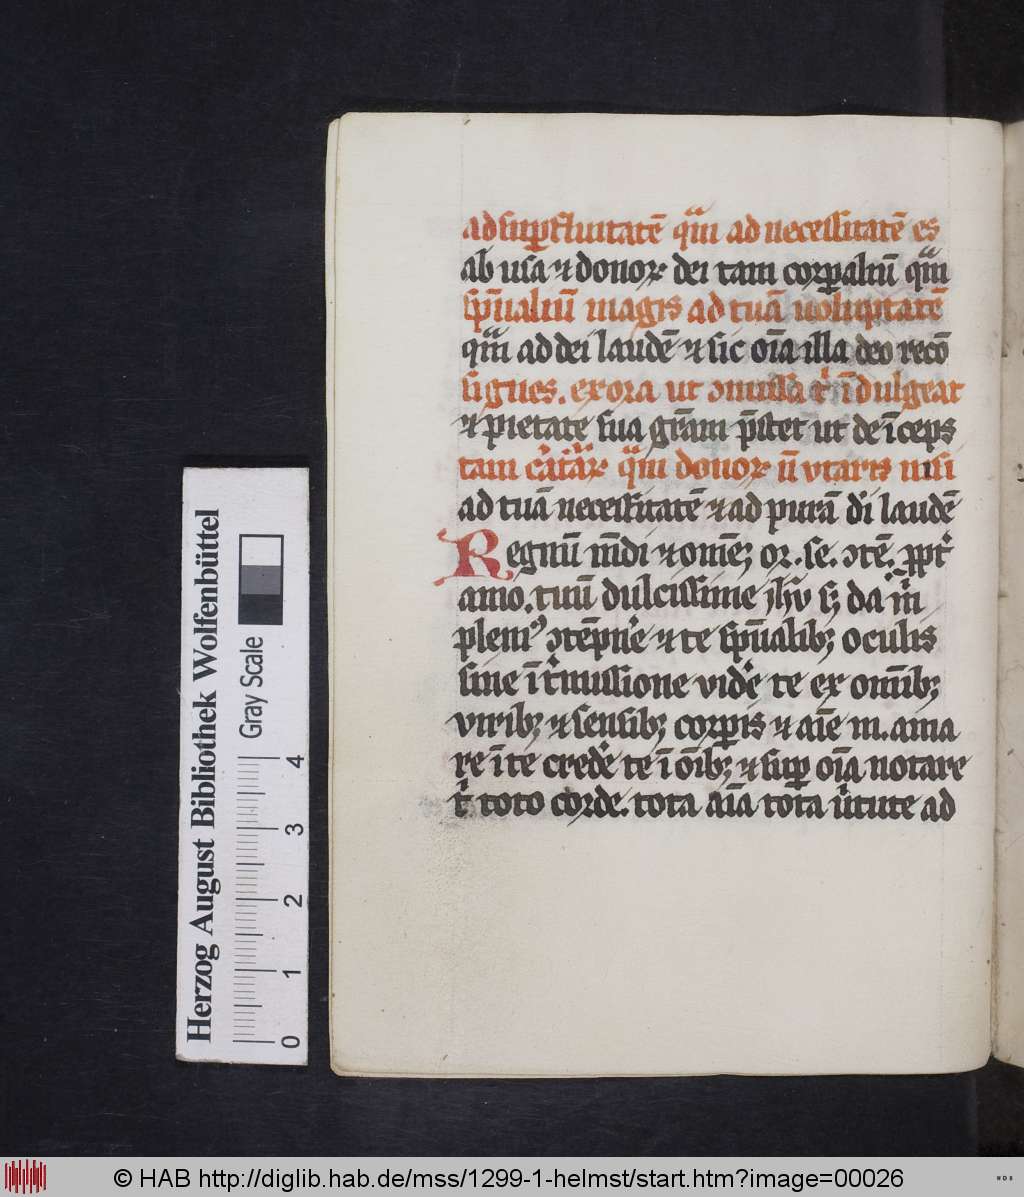 ad suꝑfluitatē qͣm ad necessitatē es
ab usa ⁊ donoꝝ dei tam corꝑaliū qͣm
sp̄ualiū magis ad tuā uoluptatē
qͣm ad dei laudē ⁊ sic oīa illa deo recō
signes. exora ut ꝯmissa t' īdulgeat
⁊ pietate sua grām p̄stet ut deīceps
tam donoꝝ n̄ utaris nisi
ad tuā necessitatē ⁊ ad purā di laudē
Regnū mūdi ⁊ omēꝫ or. se. ꝯtē. ꝓpt'
amo. tuū dulcissime jhu sꝫ da m
pleniꝰ ꝯtēpn'e ⁊ te sp̄ualibꝫ oculis
sine īt'missione vid'e te ex om̄ibꝫ
viribꝫ ⁊ sensibꝫ corꝑis ⁊ aīe m. ama
re ī te cred'e te ī oībꝫ ⁊ suꝑ oīa notare
t' toto corde. tota aīa tota u'tute ad
Herzog August Bibliothek Wolfenbüttel
Gray Scale
0 1 2 3 4
© HAB http://diglib.hab.de/mss/1299-1-helmst/start.htm?image=00026